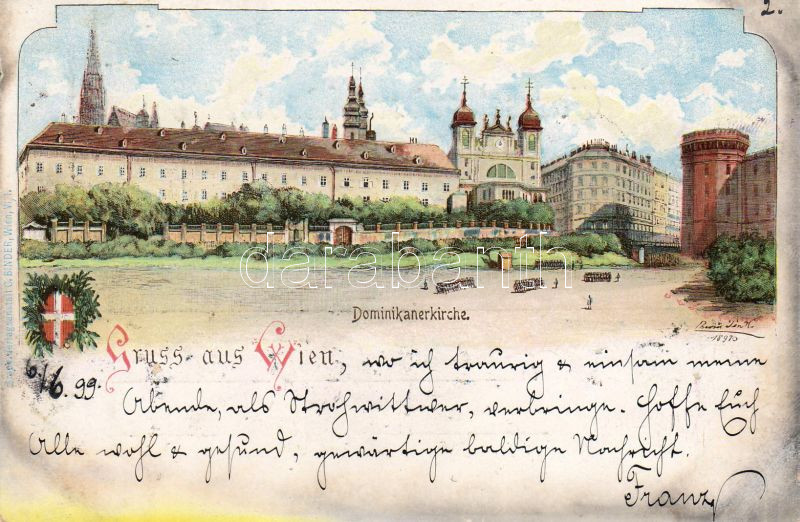 2.
darabanth
Dominikanerkirche.
C. BINDER, Wien
1897
Gruss aus Wien, wo ich traurig & einsam meine
6/6.99. Abende, als Strohwittwer, verbringe. Hoffe Euch
Alle wohl & gesund, gewärtige baldige Nachricht.
Franz